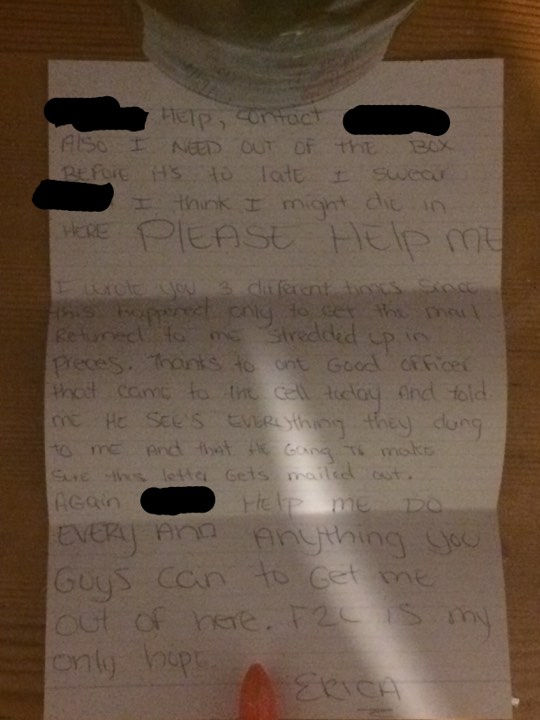 HELP, contact
Also I NEED OUT OF thE BOX
BEFORE It's to latE I swear
I think I might die in
HERE PlEASE HElp ME
I wrote you 3 different times since
this happened only to get the mail
Returned to me shredded up in
pieces. Thanks to one Good officer
that came to the cell today And told
me HE SEE'S EVERything they doing
to me And that HE Going to make
sure this letter Gets mailed out.
AGain HElp ME DO
EVERY AND Anything you
Guys can to Get me
out of here. F2L is my
only hope
ERICA